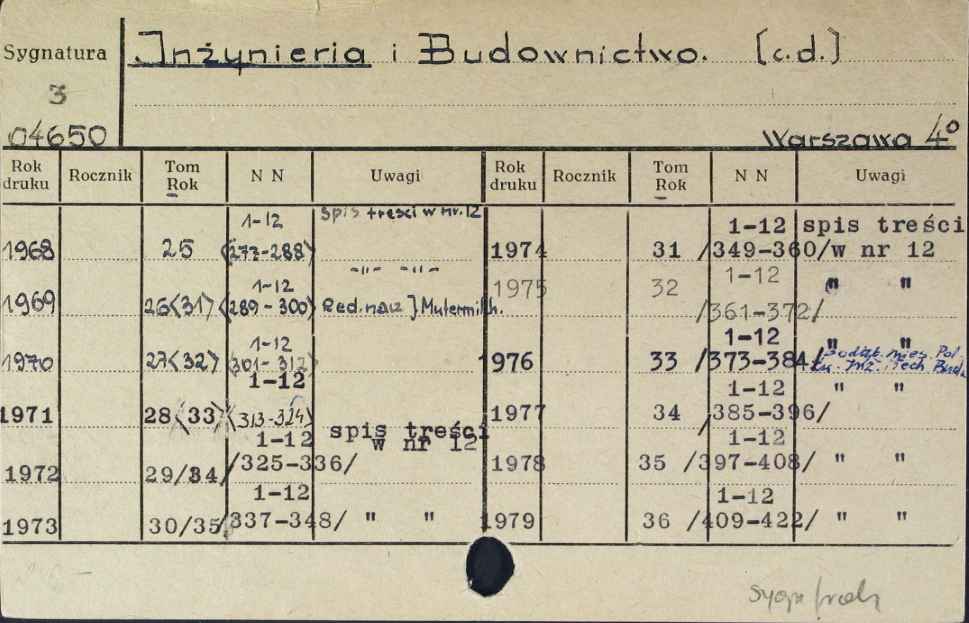 Sygnatura
Inżynieria i Budownictwo. [c.d.]
3
04650
Warszawa 4°
Rok druku Rocznik Tom Rok N N Uwagi Rok druku Rocznik Tom Rok N N Uwagi
1968 25 1-12 <277-288> Spis treści w nr. 12
1969 26<31> 1-12 <289-300> -"- -"- Red. nacz
1970 27<32> 1-12 <301-312>
1971 28<33> 1-12 <313-324>
1972 29/34/ 1-12 /325-336/ spis treści w nr 12
1973 30/35/ 1-12 /337-348/ " "
1974 31 1-12 /349-360/ spis treści w nr 12
1975 32 1-12 /361-372/ " "
1976 33 1-12 /373-384/ " "
1977 34 1-12 /385-396/ " "
1978 35 1-12 /397-408/ " "
1979 36 1-12 /409-422/ " "